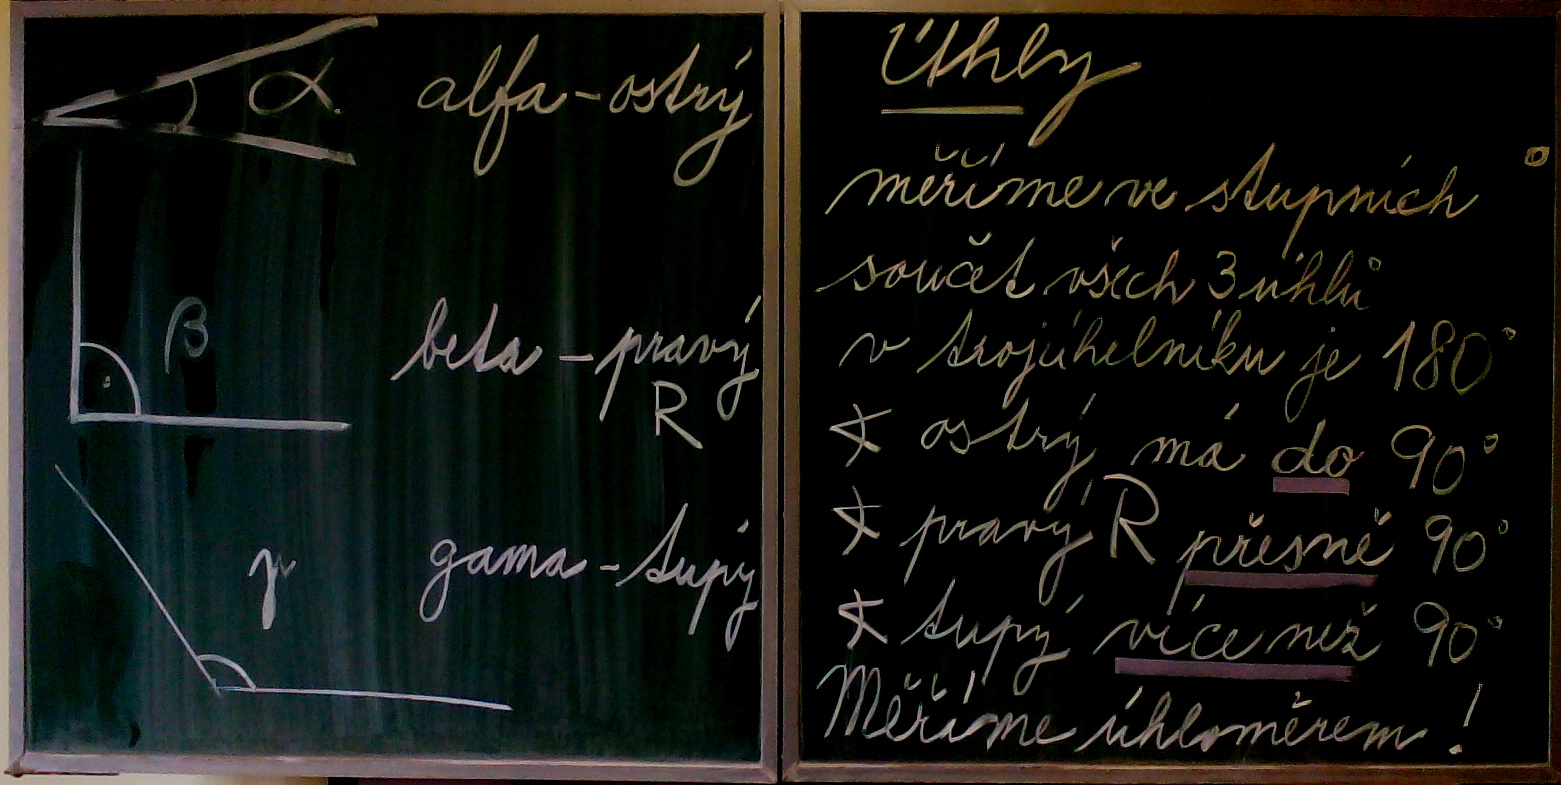 α
alfa - ostrý
β
beta - pravý
R
γ
gama - tupý
Úhly
měříme ve stupních °
součet všech 3 úhlů
v trojúhelníku je 180°
∢ ostrý má do 90°
∢ pravý R přesně 90°
∢ tupý více než 90°
Měříme úhloměrem!